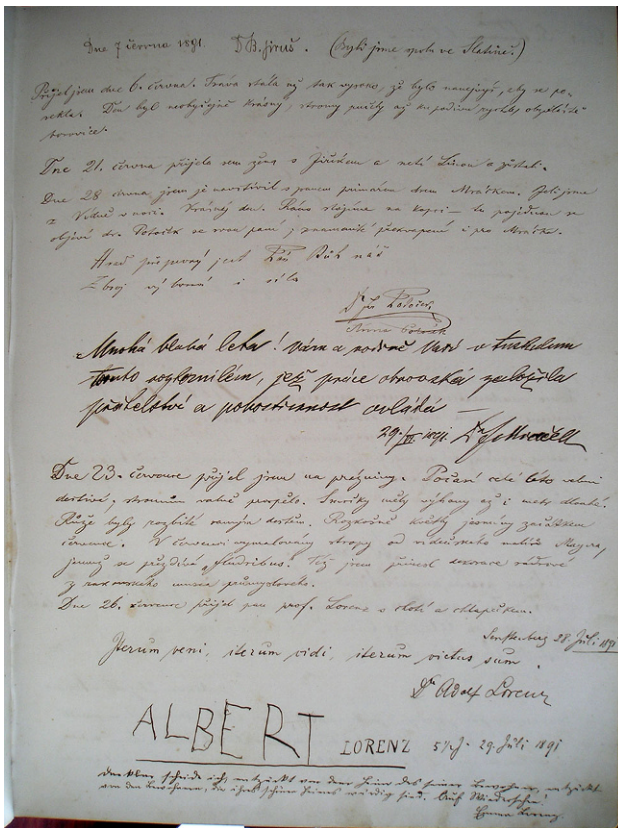 Dne 7 června 1891. D B. Jiruš. (Byli jsme spolu ve Slatině.)
Přijel jsem dne 6. června. Tráva stála už tak vysoko, že bylo nejvyšší, aby se po-
sekla. Den byl neobyčejně krásný, stromy
borovice.
Dne 21. června přijela sem žena s Jiříkem a neti Linou a zůstali.
Dne 28 června jsem je navštívil s panem primářem drem Mráčkem. Jeli jsme
z Vídně v noci. Krásný den. Ráno stojíme na kopci — tu pojednou se
objeví dr. Potoček se svou paní, znamenité překvapení i pro Mráčka.
Hrad přepevný jest Pán Bůh náš
Zbroj výborná i síla
Dr Potoček
Anna
Mnohá blahá léta! Vám a rodině Vaší v tuskulum
tomto rozkošnilém, jež práce obrovská založila
přátelství a pohostinnost ovládá —
29/VI 1891. Dr
Dne 23. července přijel jsem na prázniny. Počasí celé léto velmi
deštivé, stromům valně prospělo. Smrčky měly výhony až i metr dlouhé.
Růže byly rozbité samým deštěm. Rozkošné květy jasmíny začátkem
července. V červenci vymalovány stropy od vídeňského malíře Mayera,
jemuž se přezdívá „Fludribus". Též jsem přinesl dekorace sádrové
z rakouského musea průmyslového.
Dne 26. července přijel pan prof. Lorenz s chotí a chlapečkem.
Senftenberg 28. Juli 1891
Iterum veni, iterum vidi, iterum victus sum.
Dr Adolf Lorenz
ALBERT LORENZ 5½ J. 29. Juli 1891
scheide ich, entzückt von dem Heim des seiner Bewohner, entzückt
von den Bewohnern, die ihres schönen Heimes würdig sind. Auf Wiedersehen!
Emma Lorenz